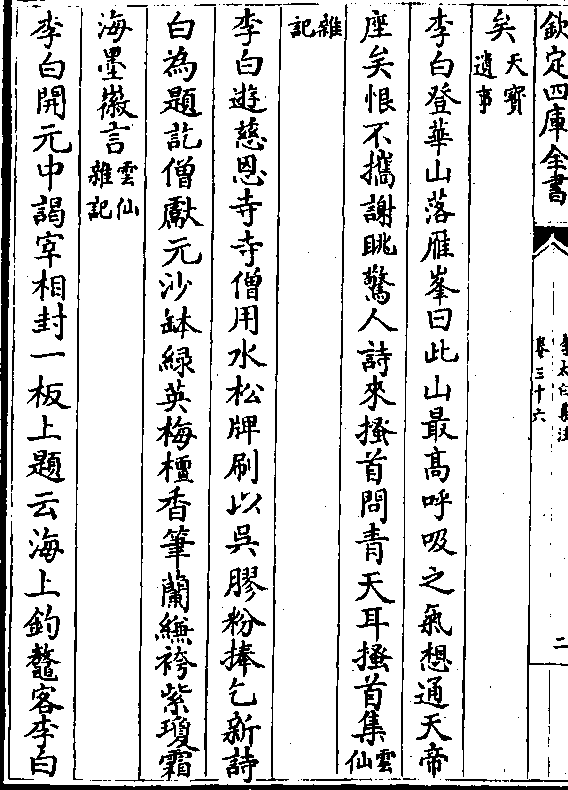 欽定四庫全書
李太白集注
卷三十六
二
矣天寳遺事
李白登華山落雁峯曰此山最髙呼吸之氣想通天帝
座矣恨不攜謝眺驚人詩來搔首問青天耳搔首集雲仙
雜記
李白遊慈恩寺寺僧用水松牌刷以吳膠粉捧乞新詩
白為題訖僧獻元沙鉢緑英梅檀香筆蘭縑袴紫瓊霜
海墨微言雲仙雜記
李白開元中謁宰相封一板上題云海上釣鼇客李白